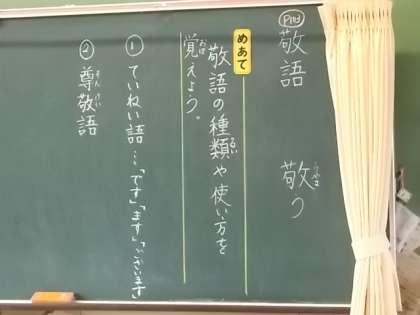 敬語　敬う
めあて
敬語の種類や使い方を
覚えよう。
① ていねい語…「です」「ます」「ございます」
② 尊敬語